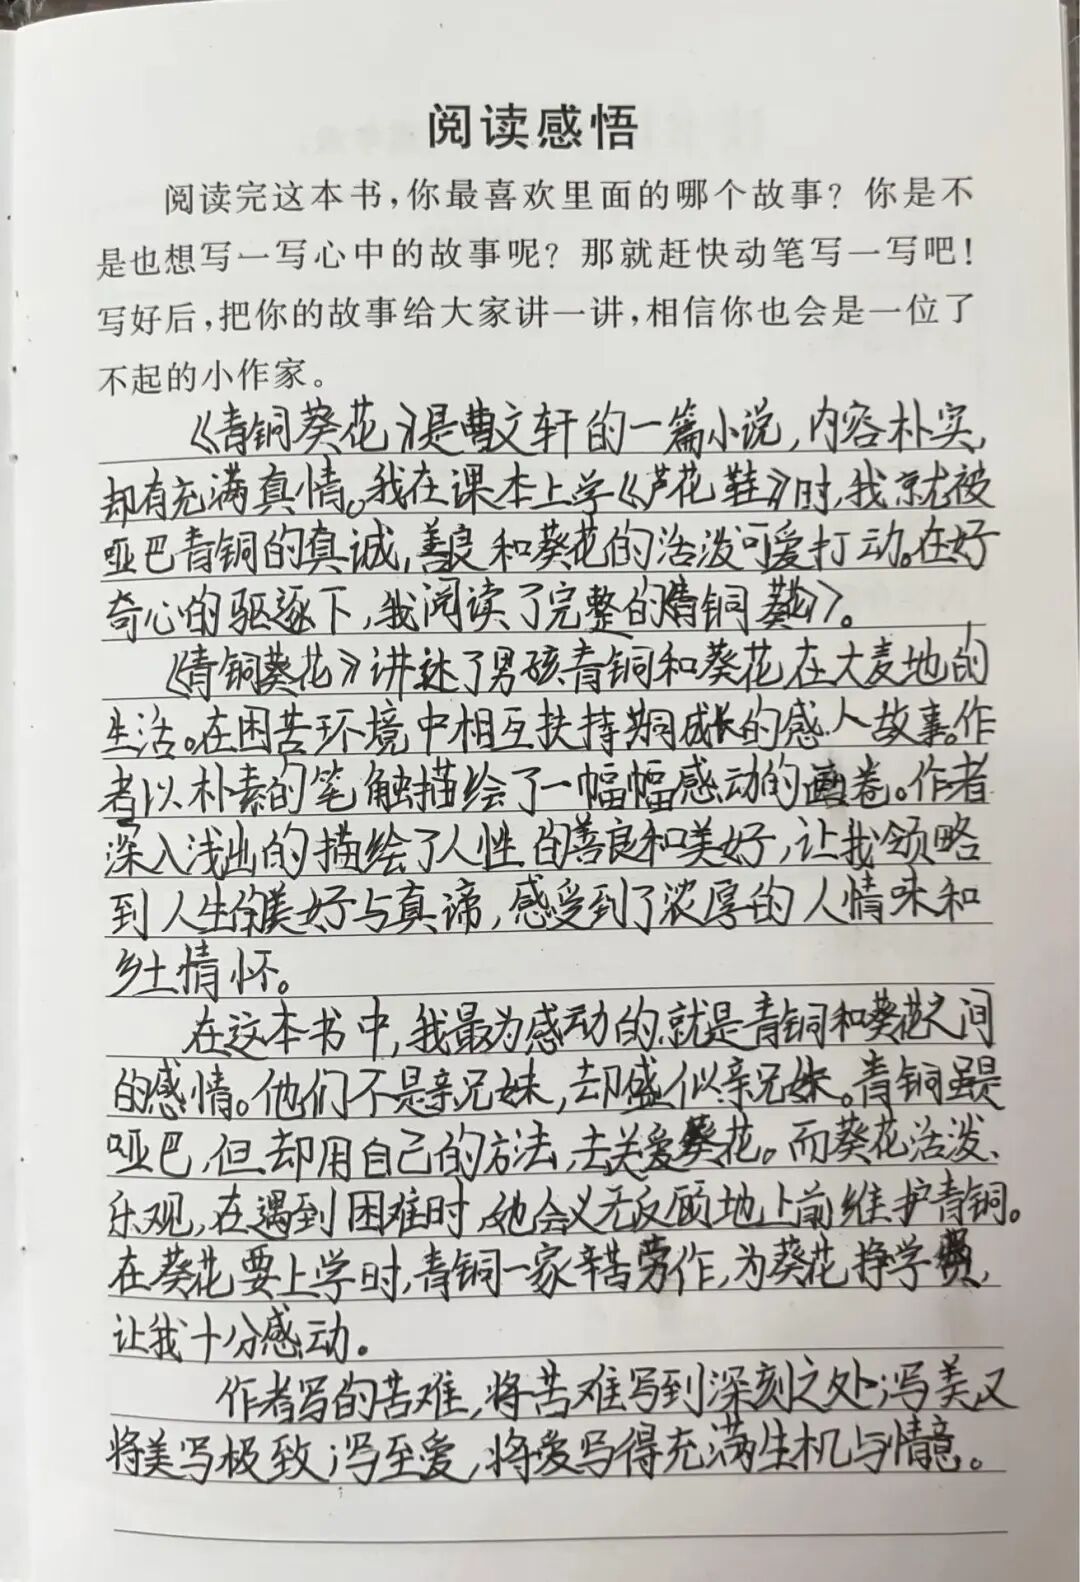 阅读感悟
阅读完这本书，你最喜欢里面的哪个故事？你是不
是也想写一写心中的故事呢？那就赶快动笔写一写吧！
写好后，把你的故事给大家讲一讲，相信你也会是一位了
不起的小作家。
《青铜葵花》是曹文轩的一篇小说，内容朴实，
却有充满真情。我在课本上学《芦花鞋》时，我就被
哑巴青铜的真诚，善良和葵花的活泼可爱打动。在好
奇心的驱逐下，我阅读了完整的《青铜葵花》。
《青铜葵花》讲述了男孩青铜和葵花在大麦地的
生活。在困苦环境中相互扶持共同成长的感人故事。作
者以朴素的笔触描绘了一幅幅感动的画卷。作者
深入浅出的描绘了人性的善良和美好，让我领略
到人生的美好与真谛，感受到了浓厚的人情味和
乡土情怀。
在这本书中，我最为感动的就是青铜和葵花之间
的感情。他们不是亲兄妹，却盛似亲兄妹。青铜虽是
哑巴，但却用自己的方法，去关爱葵花。而葵花活泼、
乐观，在遇到困难时，她会义无反顾地上前维护青铜。
在葵花要上学时，青铜一家辛苦劳作，为葵花挣学费，
让我十分感动。
作者写的苦难，将苦难写到深刻之处；写美又
将美写极致；写至爱，将爱写得充满生机与情意。